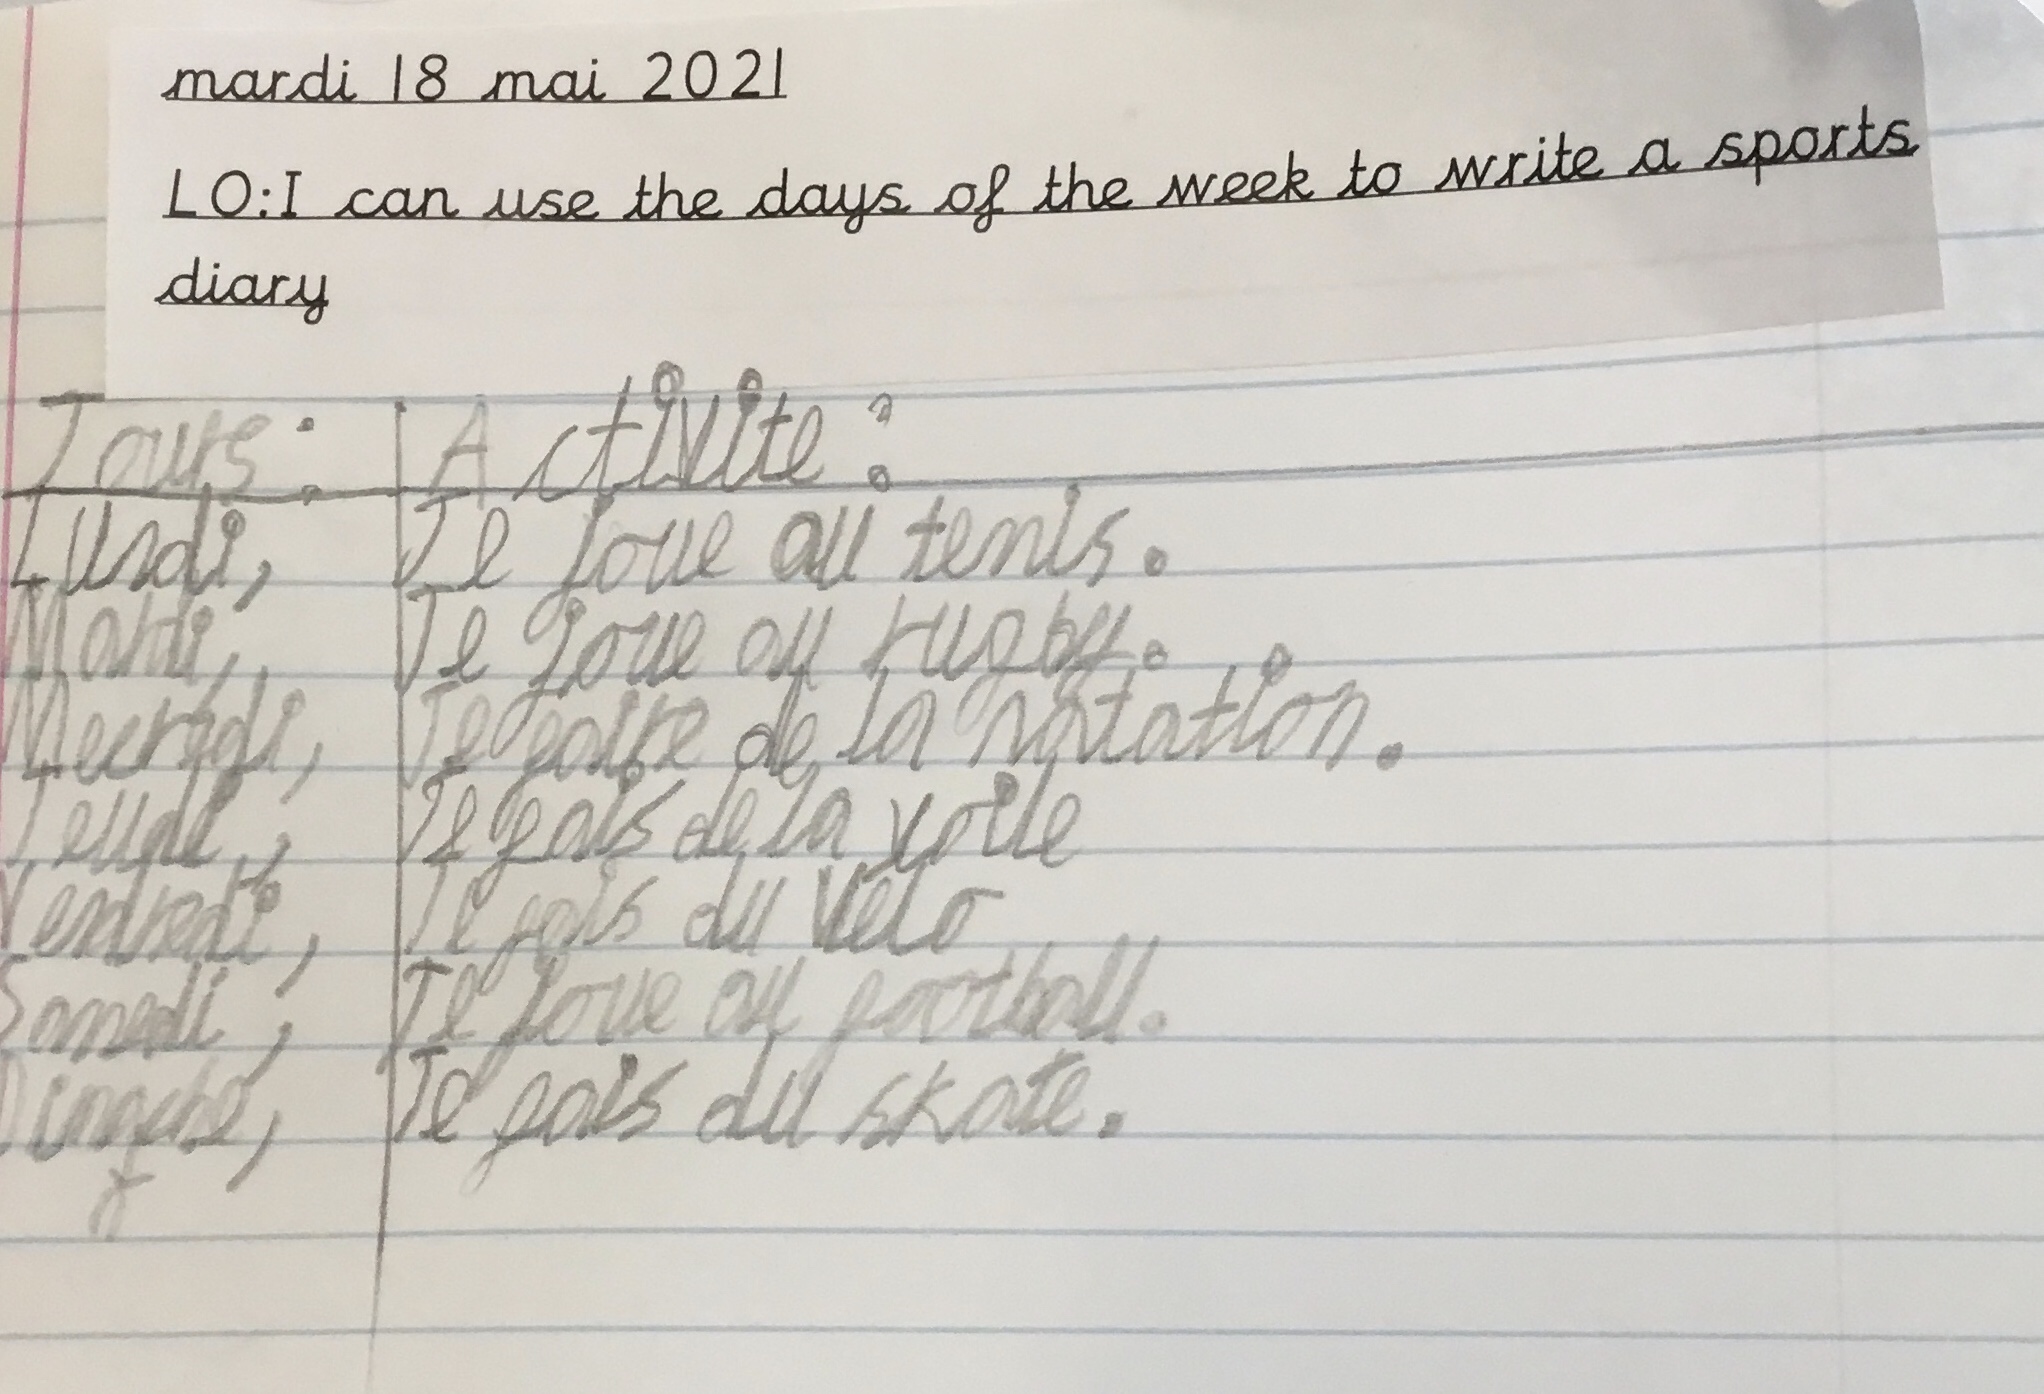 mardi 18 mai 2021
LO:I can use the days of the week to write a sports
diary
Jours: Activite:
Lundi, Je joue au tenis.
Mardi, Je joue au rugby.
Mecredi, Je faire de la natation.
Jeudi, Je fais de la voile
Vendredi, Je fais du vélo
Samedi, Je joue au football.
Je fais du skate.